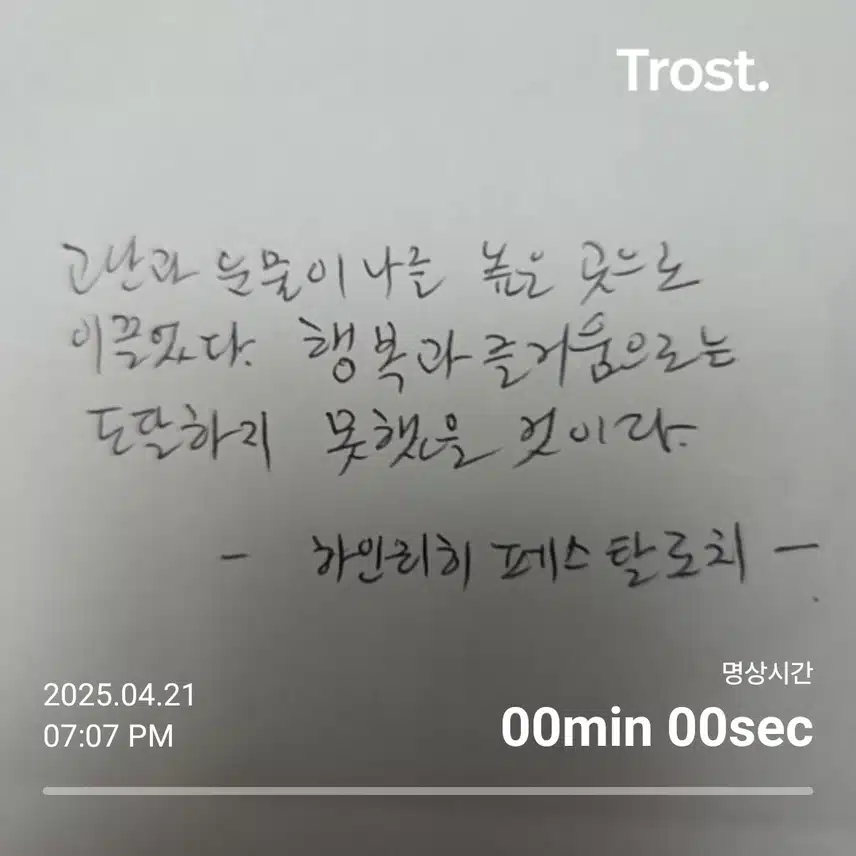 Trost.
고난과 눈물이 나를 높은 곳으로
이끌었다. 행복과 즐거움으로는
도달하지 못했을 것이다.
- 하인리히 페스탈로치 -
명상시간
2025.04.21
07:07 PM
00min 00sec